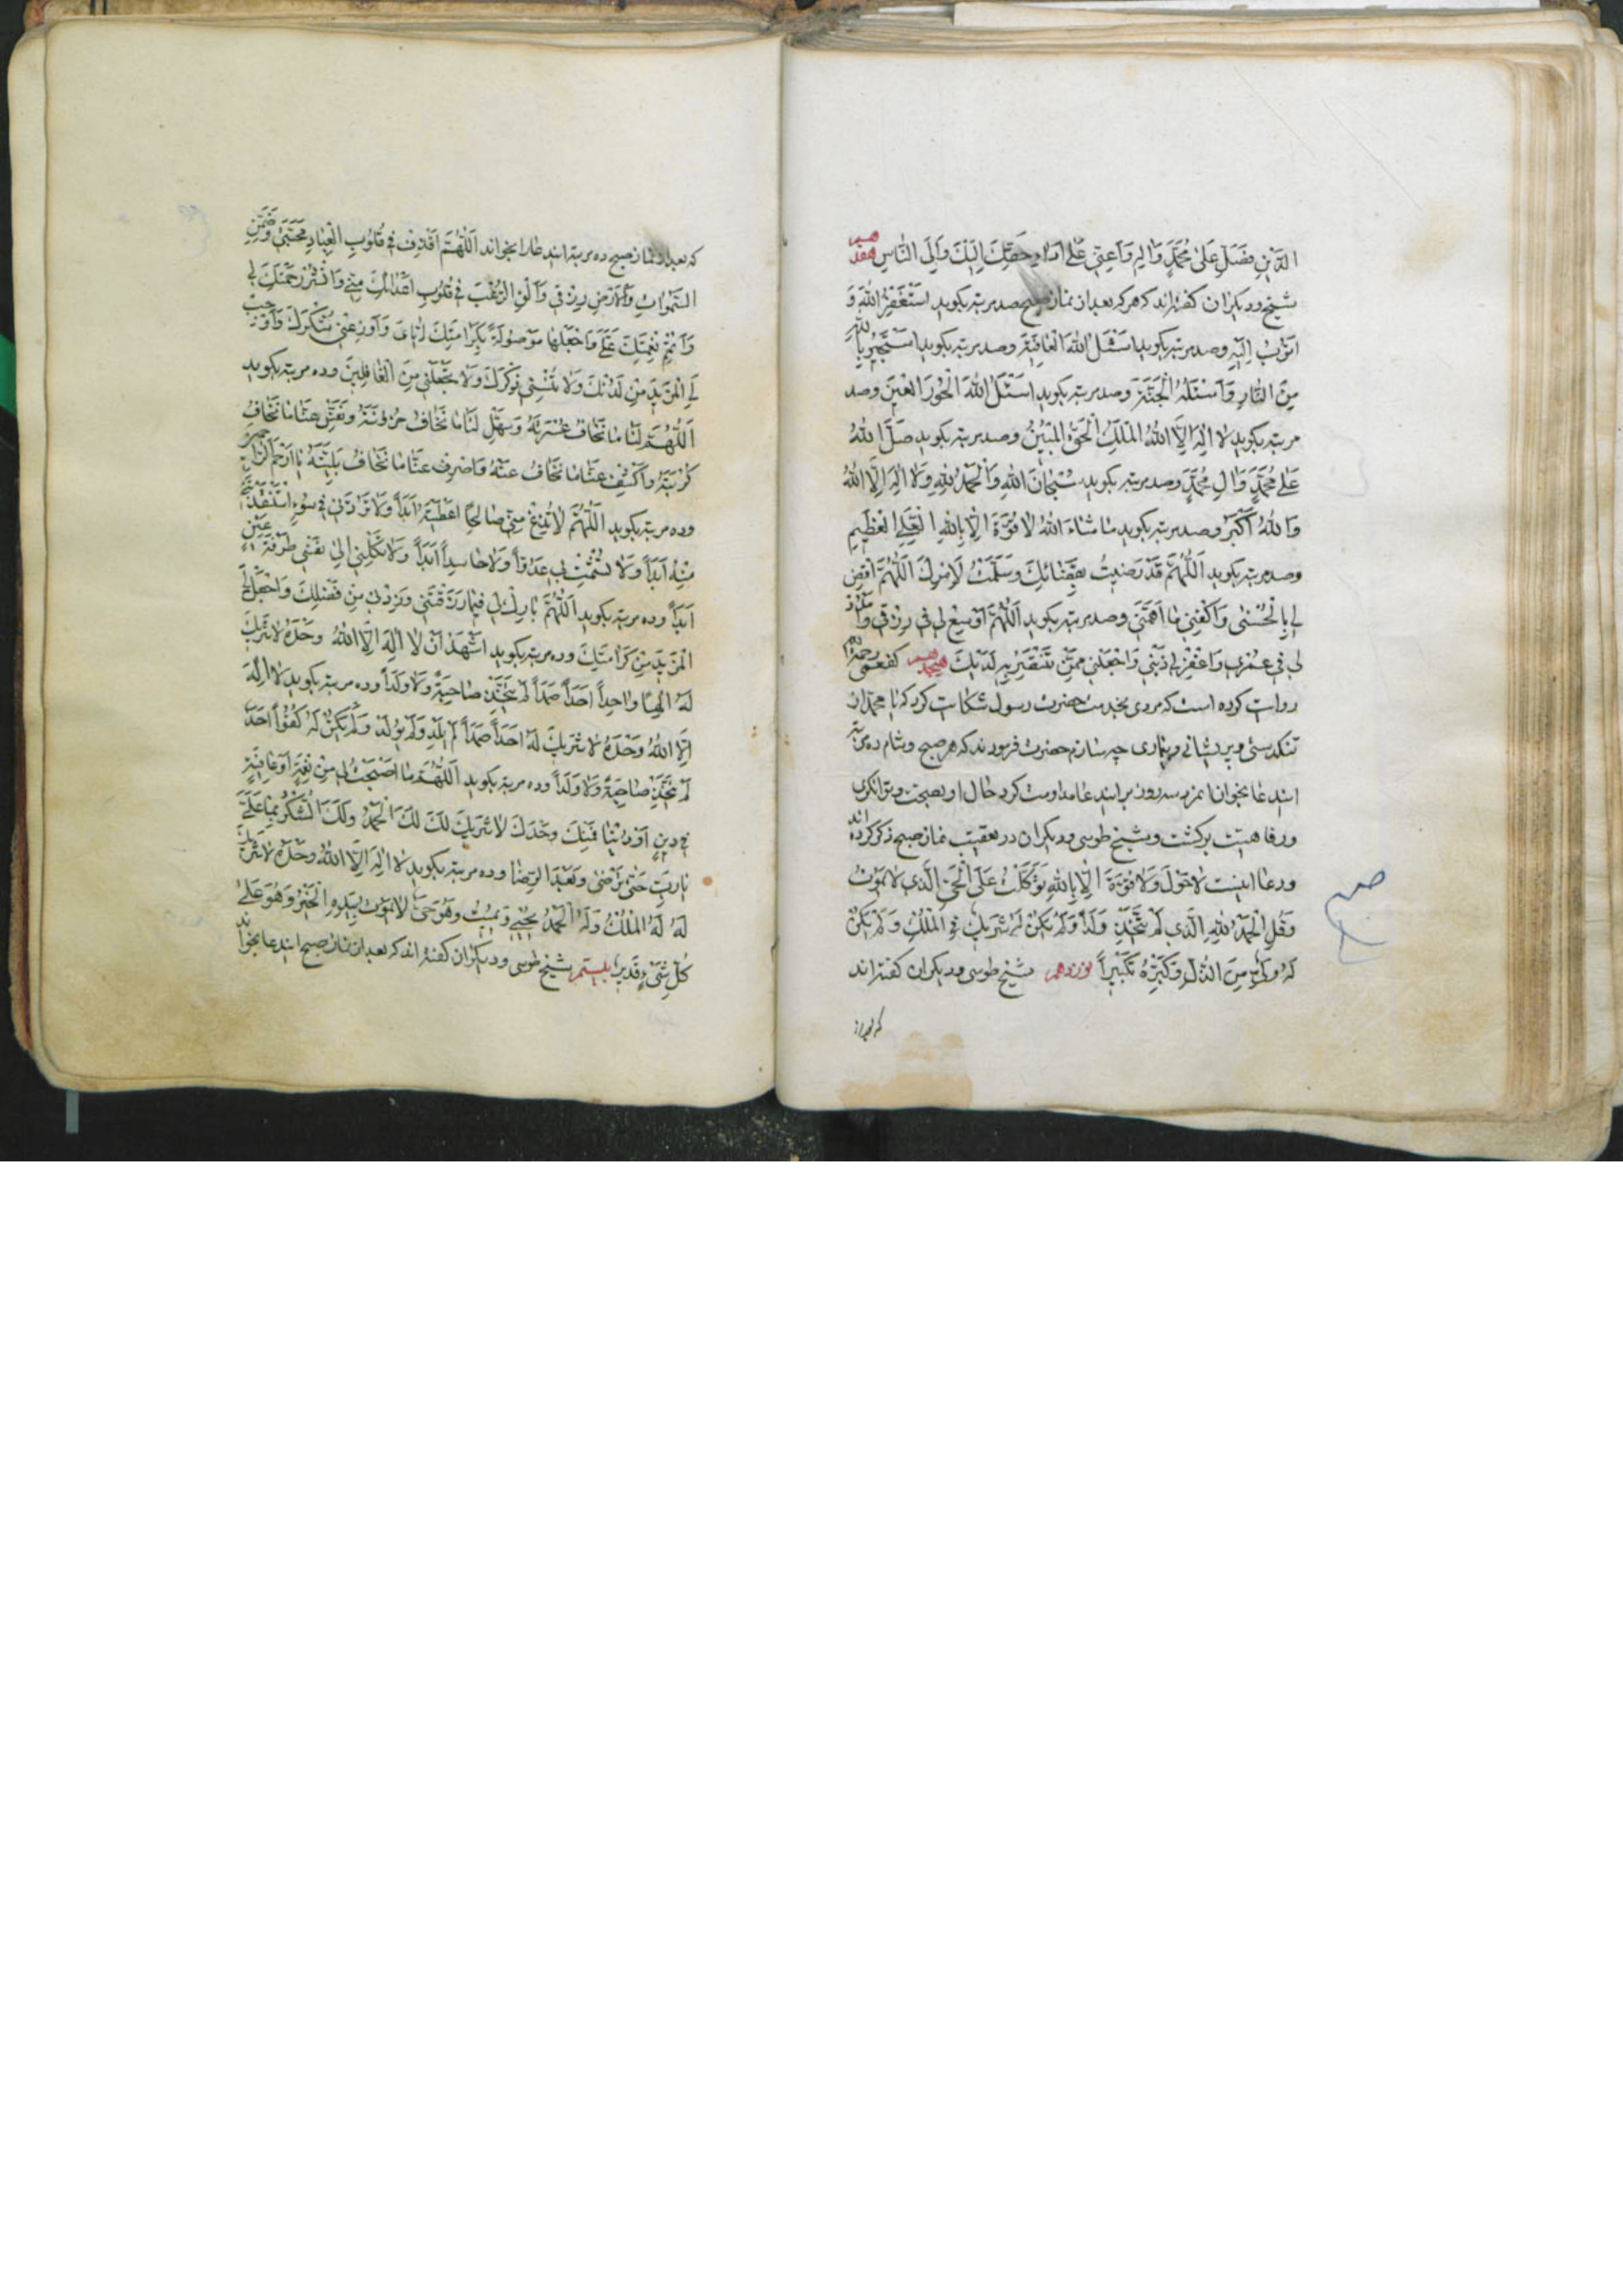 الدَّيْنِ فَصَلِّ عَلىٰ مُحَمَّدٍ وَاٰلِهِ وَاَعِنّى عَلىٰ اَدٰاءِ حَقِّكَ اِلَيْكَ وَاِلَى النّٰاسِ هفدهم
شیخ ودیکران کفته‌اند که هرکه بعد از نماز صبح صد مرتبه بکوید اَسْتَغْفِرُ اللهَ وَ
اَتُوبُ اِلَيْهِ وصد مرتبه بکوید اَسْئَلُ اللهَ الْعٰافِيَةَ وصد مرتبه بکوید اَسْتَجِيرُ بِاللهِ
مِنَ النّٰارِ وَاَسْئَلُهُ الْجَنَّةَ وصد مرتبه بکوید اَسْئَلُ اللهَ الْحُورَ الْعِينَ وصد
مرتبه بکوید لا اِلٰهَ اِلاَّ اللهُ الْمَلِكُ الْحَقُّ الْمُبِينُ وصد مرتبه بکوید صَلَّى اللهُ
عَلىٰ مُحَمَّدٍ وَاٰلِ مُحَمَّدٍ وصد مرتبه بکوید سُبْحٰانَ اللهِ وَالْحَمْدُ لِلهِ وَلا اِلٰهَ اِلاَّ اللهُ
وَاللهُ اَكْبَرُ وصد مرتبه بکوید مٰا شٰاءَ اللهُ لا قُوَّةَ اِلاّ بِاللهِ الْعَلِىِّ الْعَظِيمِ
وصد مرتبه بکوید اَللّٰهُمَّ قَدْ رَضِيتُ بِقَضٰائِكَ وَسَلَّمْتُ لِاَمْرِكَ اَللّٰهُمَّ اقْضِ
لى بِالْحُسْنىٰ وَاكْفِنى مٰا اَهَمَّنى وصد مرتبه بکوید اَللّٰهُمَّ اَوْسِعْ لى فى رِزْقى وَامْدُدْ
لى فى عُمْرى وَاغْفِرْ لى ذَنْبى وَاجْعَلْنى مِمَّنْ تَنْتَصِرُ بِهِ لِدينِكَ هیجدهم کفعمی رحمه الله
روایت کرده است که مردی بخدمت حضرت رسول شکایت کرد که یا محمد از
تنکدستی وپریشانی وبیماری چه سازم حضرت فرمودند که هر صبح وشام ده مرتبه
ایندعا بخوان انمرد سه روز بر ایندعا مداومت کرد حال او بصحت وتوانکری
ورفاهیت برکشت وشیخ طوسی ودیکران در تعقیب نماز صبح ذکر کرده اند
ودعا اینست لا حَوْلَ وَلا قُوَّةَ اِلاّ بِاللهِ تَوَكَّلْتُ عَلَى الْحَىِّ الَّذى لا يَمُوتُ
وَقُلِ الْحَمْدُ لِلهِ الَّذى لَمْ يَتَّخِذْ وَلَداً وَلَمْ يَكُنْ لَهُ شَرِيكٌ فِى الْمُلْكِ وَلَمْ يَكُنْ
لَهُ وَلِىٌّ مِنَ الذُّلِّ وَكَبِّرْهُ تَكْبِيراً نوزدهم شیخ طوسی ودیکران کفته‌اند
که بعد از
که بعد از نماز صبح ده مرتبه ایندعا را بخواند اَللّٰهُمَّ اقْذِفْ فى قُلُوبِ الْعِبٰادِ مَحَبَّتى وَضَمِّنِ
السَّمٰوٰاتِ وَالْاَرْضِ رِزْقى وَاَلْقِ الرُّعْبَ فى قُلُوبِ اَعْدٰائِكَ مِنّى وَانْشُرْ رَحْمَتَكَ لى
وَاَتْمِمْ نِعْمَتَكَ عَلَىَّ وَاجْعَلْهٰا مَوْصُولَةً بِكَرٰامَتِكَ اِيّٰاىَ وَاَوْزِعْنى شُكْرَكَ وَاَوْجِبْ
لِىَ الْمَزِيدَ مِنْ لَدُنْكَ وَلا تُنْسِنى ذِكْرَكَ وَلا تَجْعَلْنى مِنَ الْغٰافِلِينَ وده مرتبه بکوید
اَللّٰهُمَّ لَنٰا مٰا نَخٰافُ عُسْرَتَهُ وَسَهِّلْ لَنٰا مٰا نَخٰافُ حُزُونَتَهُ وَنَفِّسْ عَنّٰا مٰا نَخٰافُ
كُرْبَتَهُ وَاكْشِفْ عَنّٰا مٰا نَخٰافُ غَمَّهُ وَاصْرِفْ عَنّٰا مٰا نَخٰافُ بَلِيَّتَهُ يٰا اَرْحَمَ الرّٰاحِمِينَ
وده مرتبه بکوید اَللّٰهُمَّ لا تَنْزِعْ مِنّى صٰالِحَ مٰا اَعْطَيْتَهُ اَبَداً وَلا تَرُدَّنى فى سُوءٍ اسْتَنْقَذْتَنى
مِنْهُ اَبَداً وَلا تُشْمِتْ بى عَدُوّاً وَلا حٰاسِداً اَبَداً وَلا تَكِلْنى اِلىٰ نَفْسى طَرْفَةَ عَيْنٍ
اَبَداً وده مرتبه بکوید اَللّٰهُمَّ بٰارِكْ لى فيمٰا رَزَقْتَنى وَزِدْنى مِنْ فَضْلِكَ وَاجْعَلْ لِىَ
الْمَزِيدَ مِنْ كَرٰامَتِكَ وده مرتبه بکوید اَشْهَدُ اَنْ لا اِلٰهَ اِلاَّ اللهُ وَحْدَهُ لا شَرِيكَ
لَهُ اِلٰهاً وٰاحِداً اَحَداً صَمَداً لَمْ يَتَّخِذْ صٰاحِبَةً وَلا وَلَداً وده مرتبه بکوید لا اِلٰهَ
اِلاَّ اللهُ وَحْدَهُ لا شَرِيكَ لَهُ اَحَداً صَمَداً لَمْ يَلِدْ وَلَمْ يُولَدْ وَلَمْ يَكُنْ لَهُ كُفُواً اَحَدٌ
لَمْ يَتَّخِذْ صٰاحِبَةً وَلا وَلَداً وده مرتبه بکوید اَللّٰهُمَّ مٰا اَصْبَحَتْ لى مِنْ نِعْمَةٍ اَوْ عٰافِيَةٍ
فى دِينٍ اَوْ دُنْيٰا فَمِنْكَ وَحْدَكَ لا شَرِيكَ لَكَ لَكَ الْحَمْدُ وَلَكَ الشُّكْرُ بِهٰا عَلَىَّ
يٰا رَبِّ حَتّىٰ تَرْضىٰ وَبَعْدَ الرِّضٰا وده مرتبه بکوید لا اِلٰهَ اِلاَّ اللهُ وَحْدَهُ لا شَرِيكَ
لَهُ لَهُ الْمُلْكُ وَلَهُ الْحَمْدُ يُحْيى وَيُمِيتُ وَهُوَ حَىٌّ لا يَمُوتُ بِيَدِهِ الْخَيْرُ وَهُوَ عَلىٰ
كُلِّ شَىْءٍ قَدِيرٌ بیستم شیخ طوسی ودیکران کفته‌اند که بعد از نماز صبح ایندعا بخواند